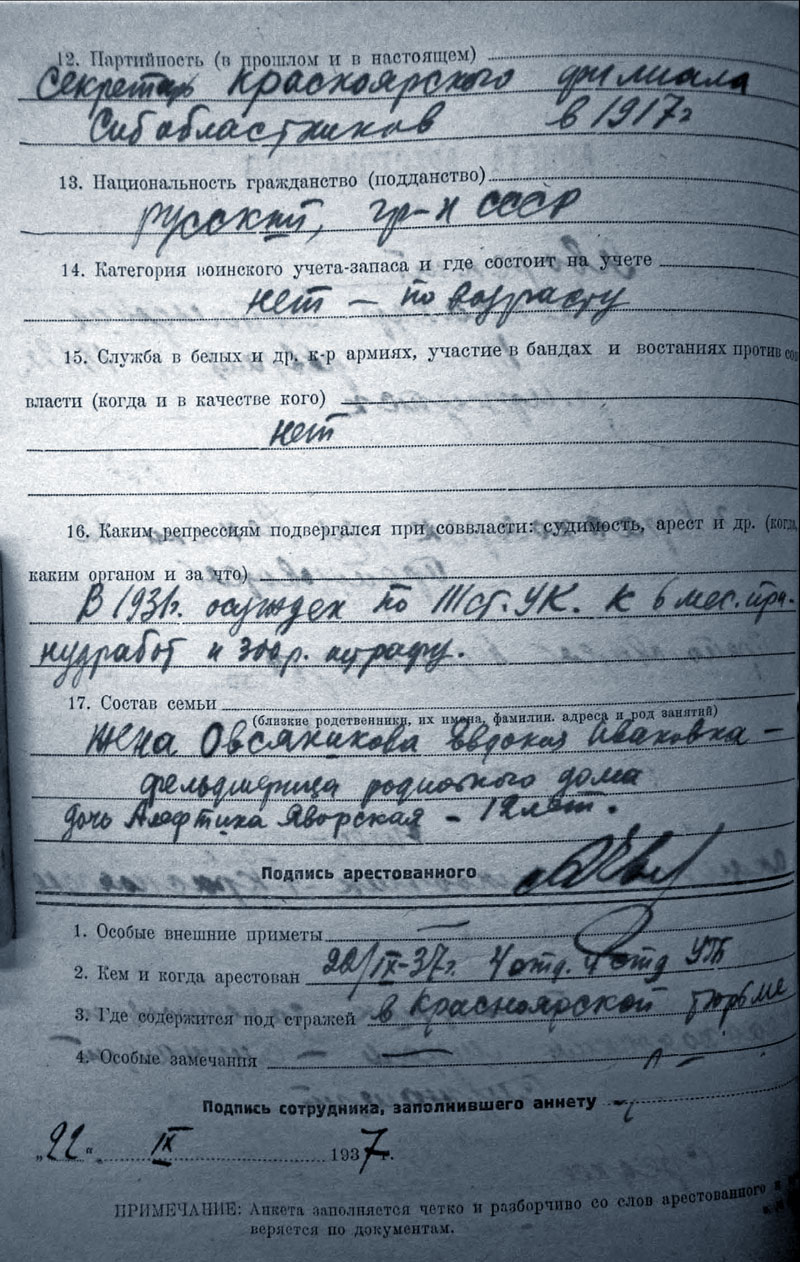 12. Партийность (в прошлом и в настоящем)
Секретарь Красноярского филиала
Сибобластников в 1917г
13. Национальность гражданство (подданство)
русский, гр-н СССР
14. Категория воинского учета-запаса и где состоит на учете
нет – по возрасту
15. Служба в белых и др. к-р армиях, участие в бандах и востаниях против сов
власти (когда и в качестве кого)
нет
16. Каким репрессиям подвергался при соввласти: судимость, арест и др. (когда,
каким органом и за что)
В 1931г. осужден по ст. УК. к 6 мес. при-
нудработ и 300р. штрафу.
17. Состав семьи
(близкие родственники, их имена, фамилии. адреса и род занятий)
Жена Овсяникова Евдокия Ивановна –
фельдшерица родильного дома
дочь Алефтина Яворская – 12 лет.
Подпись арестованного
1. Особые внешние приметы —
2. Кем и когда арестован 22/IX-37г. 4 отд. УГБ
3. Где содержится под стражей в Красноярской тюрьме
4. Особые замечания —
Подпись сотрудника, заполнившего аннету
„22“ IX 1937г.
ПРИМЕЧАНИЕ: Анкета заполняется четко и разборчиво со слов арестованного и
веряется по документам.